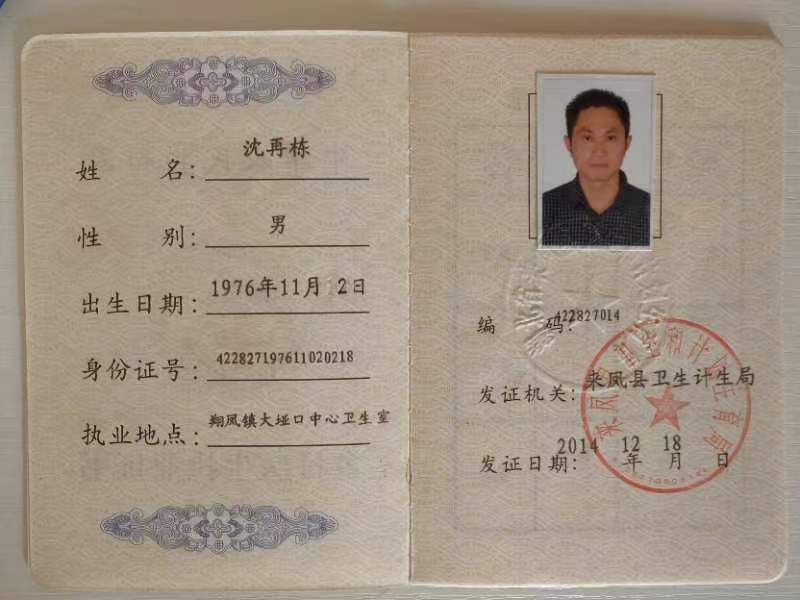 姓 名: 沈再栋
性 别: 男
出生日期: 1976年11月 2日
身份证号: 422827197611020218
执业地点: 翔凤镇大垭口中心卫生室
编 码: 422827014
发证机关: 来凤县卫生计生局
发证日期: 2014年 12月 18日